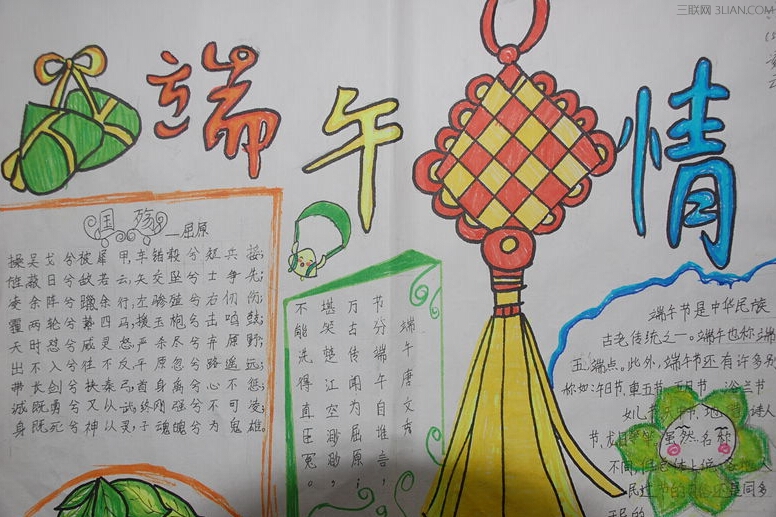 三联网 3LIAN.COM
端午情
国殇
—屈原
操吴戈兮被犀甲,车错毂兮短兵接;
旌蔽日兮敌若云,矢交坠兮士争先;
凌余阵兮躐余行,左骖殪兮右刃伤;
霾两轮兮絷四马,援玉枹兮击鸣鼓;
天时怼兮威灵怒,严杀尽兮弃原野;
出不入兮往不反,平原忽兮路遥远;
带长剑兮挟秦弓,首身离兮心不惩;
诚既勇兮又以武,终刚强兮不可凌;
身既死兮神以灵,子魂魄兮为鬼雄。
端午唐文秀
节分端午自谁言,
万古传闻为屈原;
堪笑楚江空渺渺,
不能洗得直臣冤。
端午节是中华民族
古老传统之一。端午也称端
五,端点。此外,端午节还有许多别
称,如:午日节、重五节、五月节、浴兰节
女儿节、天中节、地腊、诗人
节、龙日等等。虽然名称
不同,但总体上说,各地人
民过节的习俗还是同多
于异的